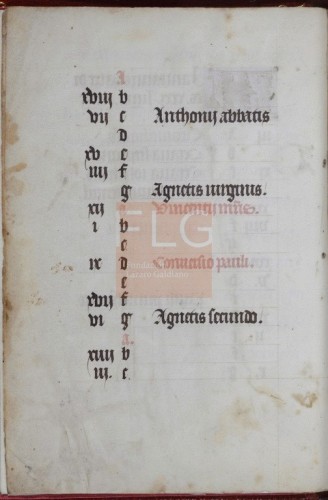 A
xviij b
vij c Anthonij abbatis
d
xv e
iiij f
g Agnetis uirginis.
xij A Vincentij mris.
i b
c
ix d Conuersio pauli.
e
xvij f
vi g Agnetis secundo.
A.
xiiij b
iij. c
FLG